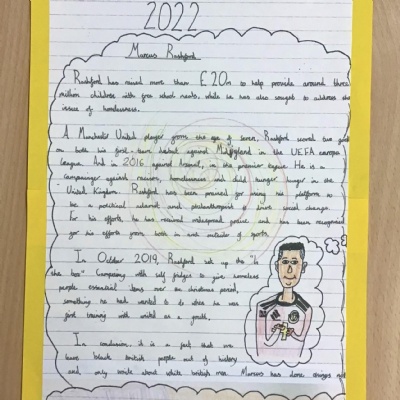 2022
Marcus Rashford
Rashford has raised more than £20m to help provide around three
million children with free school meals, while he has also sought to address the
issue of homelessness.
A Manchester United player from the age of seven, Rashford scored two goals
on both his first team debut against Midtjylland in the UEFA europa
league. And in 2016 against Arsenal, in the premier league. He is a
campaigner against racism, homelessness and child hunger in the
United Kingdom. Rashford has been praised for using his platform to
be a political activist and philanthropist to drive social change.
For his efforts, he has received widespread praise and has been recognised
for his efforts from both in and outside of sports.
In October 2019, Rashford set up the "In
the box" Campaing with self fridges to give homeless
people essential items over the christmas period,
something he had wanted to do when he was
first training with united as a youth.
In conclusion, it is a fact that we
learn black british people out of history
and only write about white british men. Marcus has done